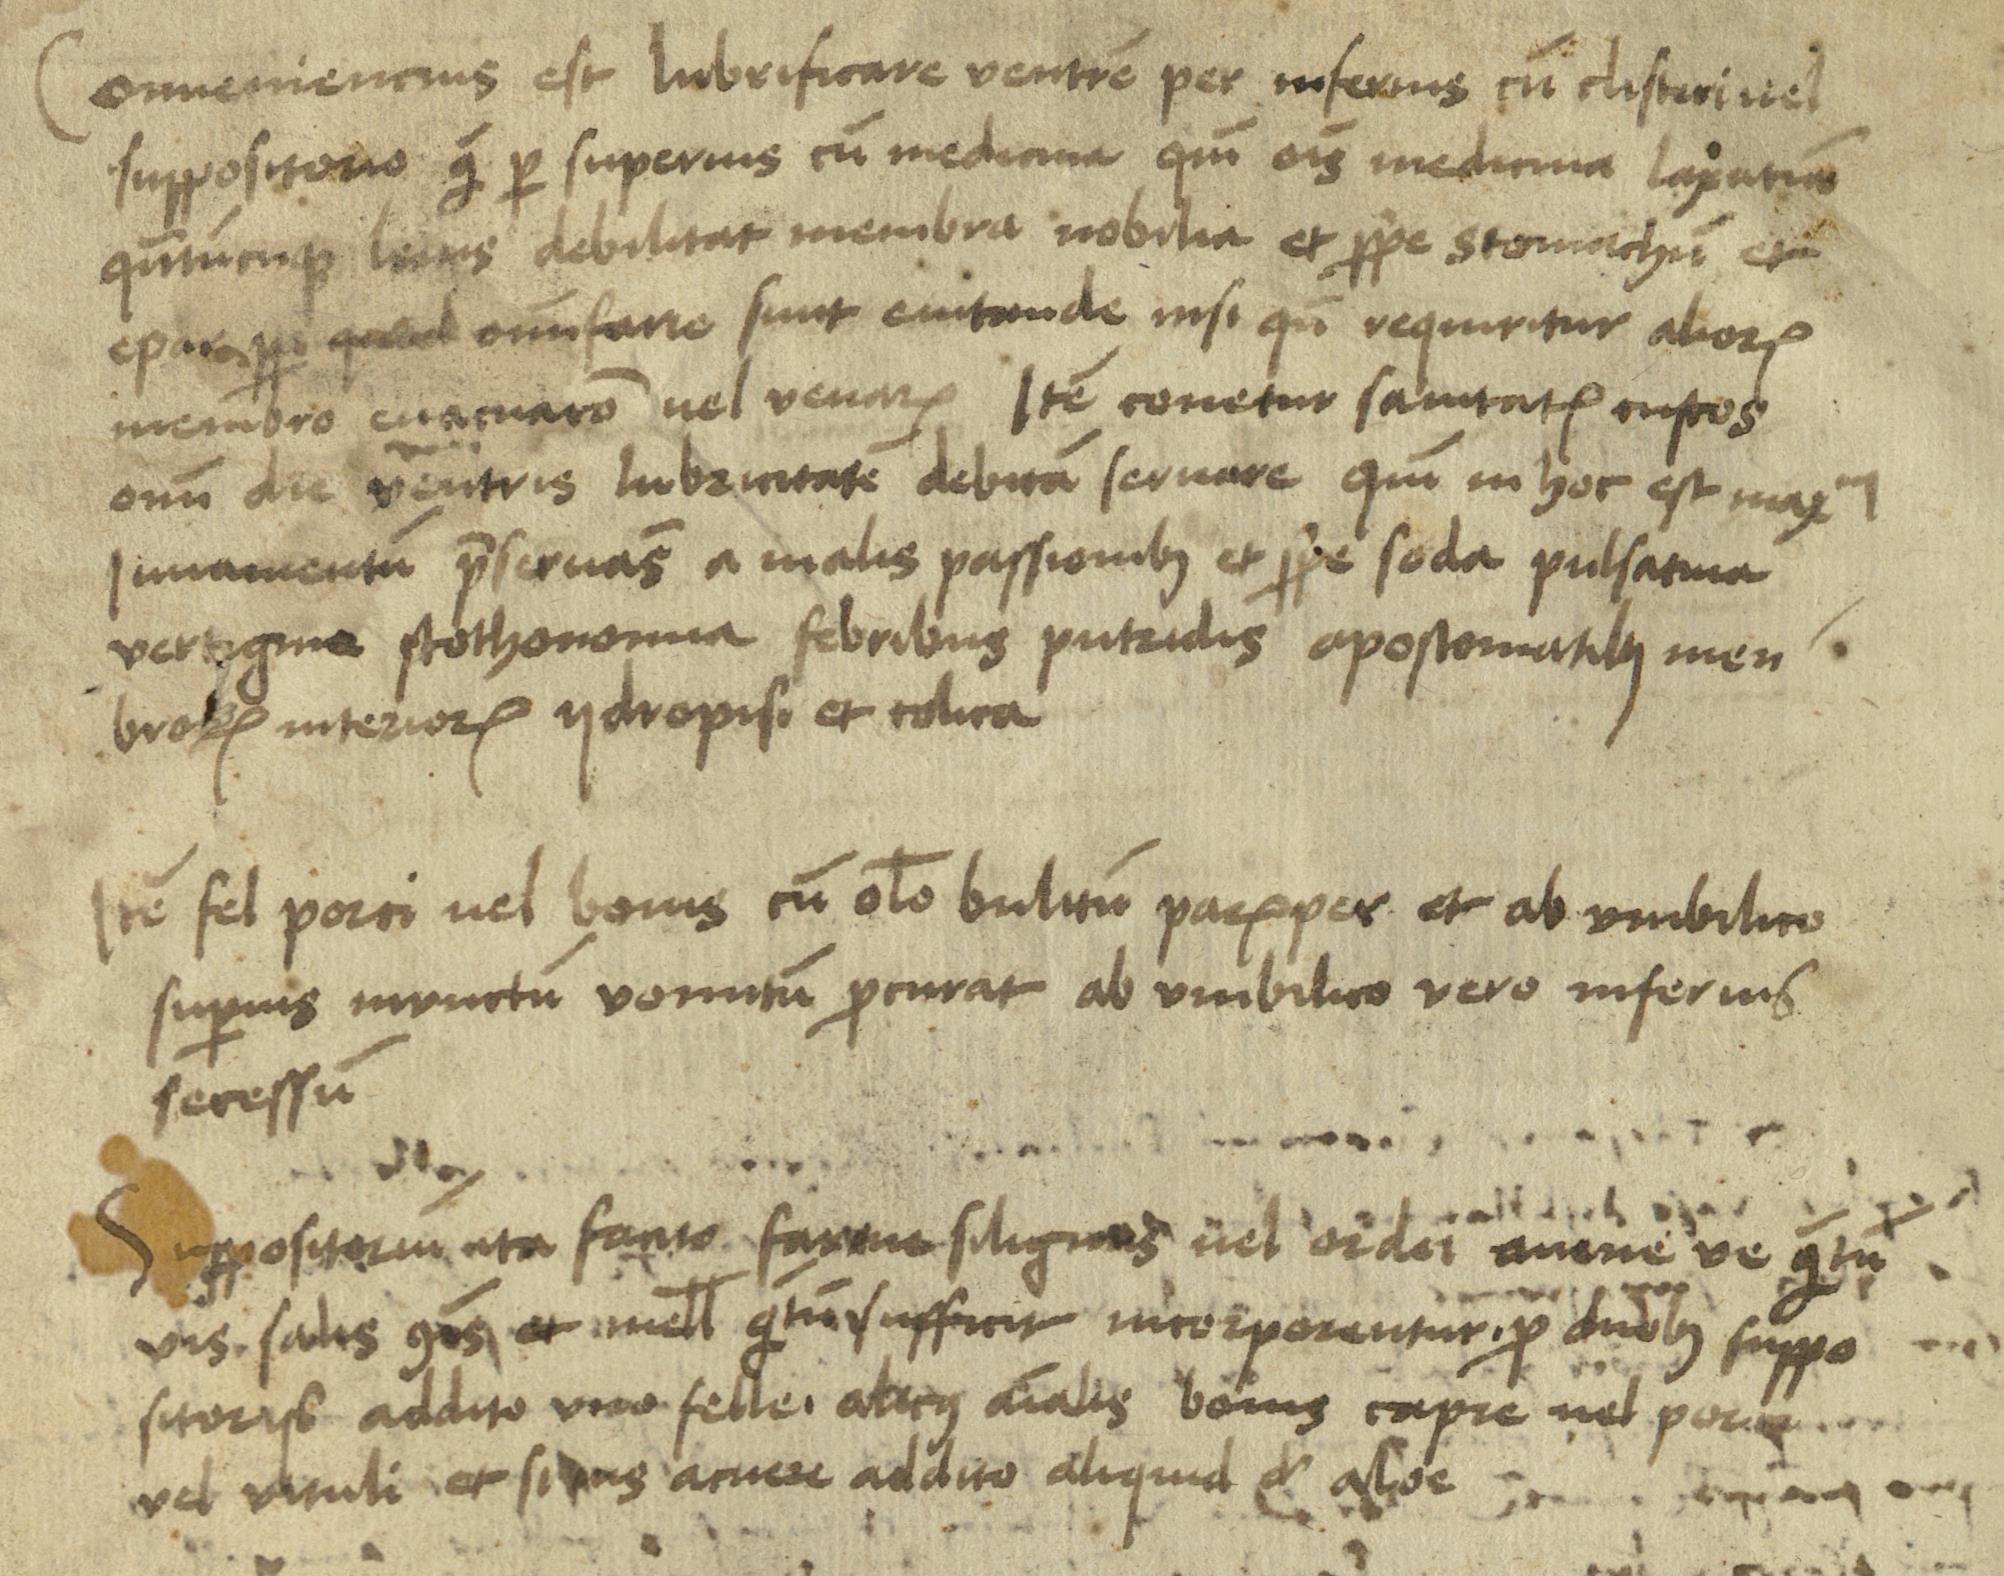 Conueniencius est lubrificare ventrē per inferius cū clisteri uel
suppositorio q̄ ꝑ superius cū medicina qm̄ oīs medicina laxatiua
qn̄tūcūqꝫ leuis debilitat membra nobilia et p̱pe stomachū et
epar sunt euitande nisi qn̄ requiritur alioꝝ
membro euacuaro᷒ uel venaꝝ Itē conetur sanitatꝭ custos
omī die ventris lubricitatē debitā seruare qm̄ in hoc est maxᵐ
Iuuamentū p̄seruās a malis passionibꝫ et p̱pe soda pulsatiua
vertigine stothonomia febribus putridis apostematibꝫ men
broꝝ interioꝝ ydropisi et colica
Itē fel porci uel bouis cū oleo bulitū et ab vmbilico
suꝑius inunctū vomitū ꝓcurat ab vmbilico vero inferius
secessū
Suppositoriū ita facito farine siliginis uel ordei auene ve q̄tū
vis salis et mell q̄tū sufficit incorporentur ꝓ duobꝫ suppo
sitorijs addito vno fellei alicꝰ aīalis bouis capre uel porci
vel vituli et si uis acuere addito aliquid de aloe